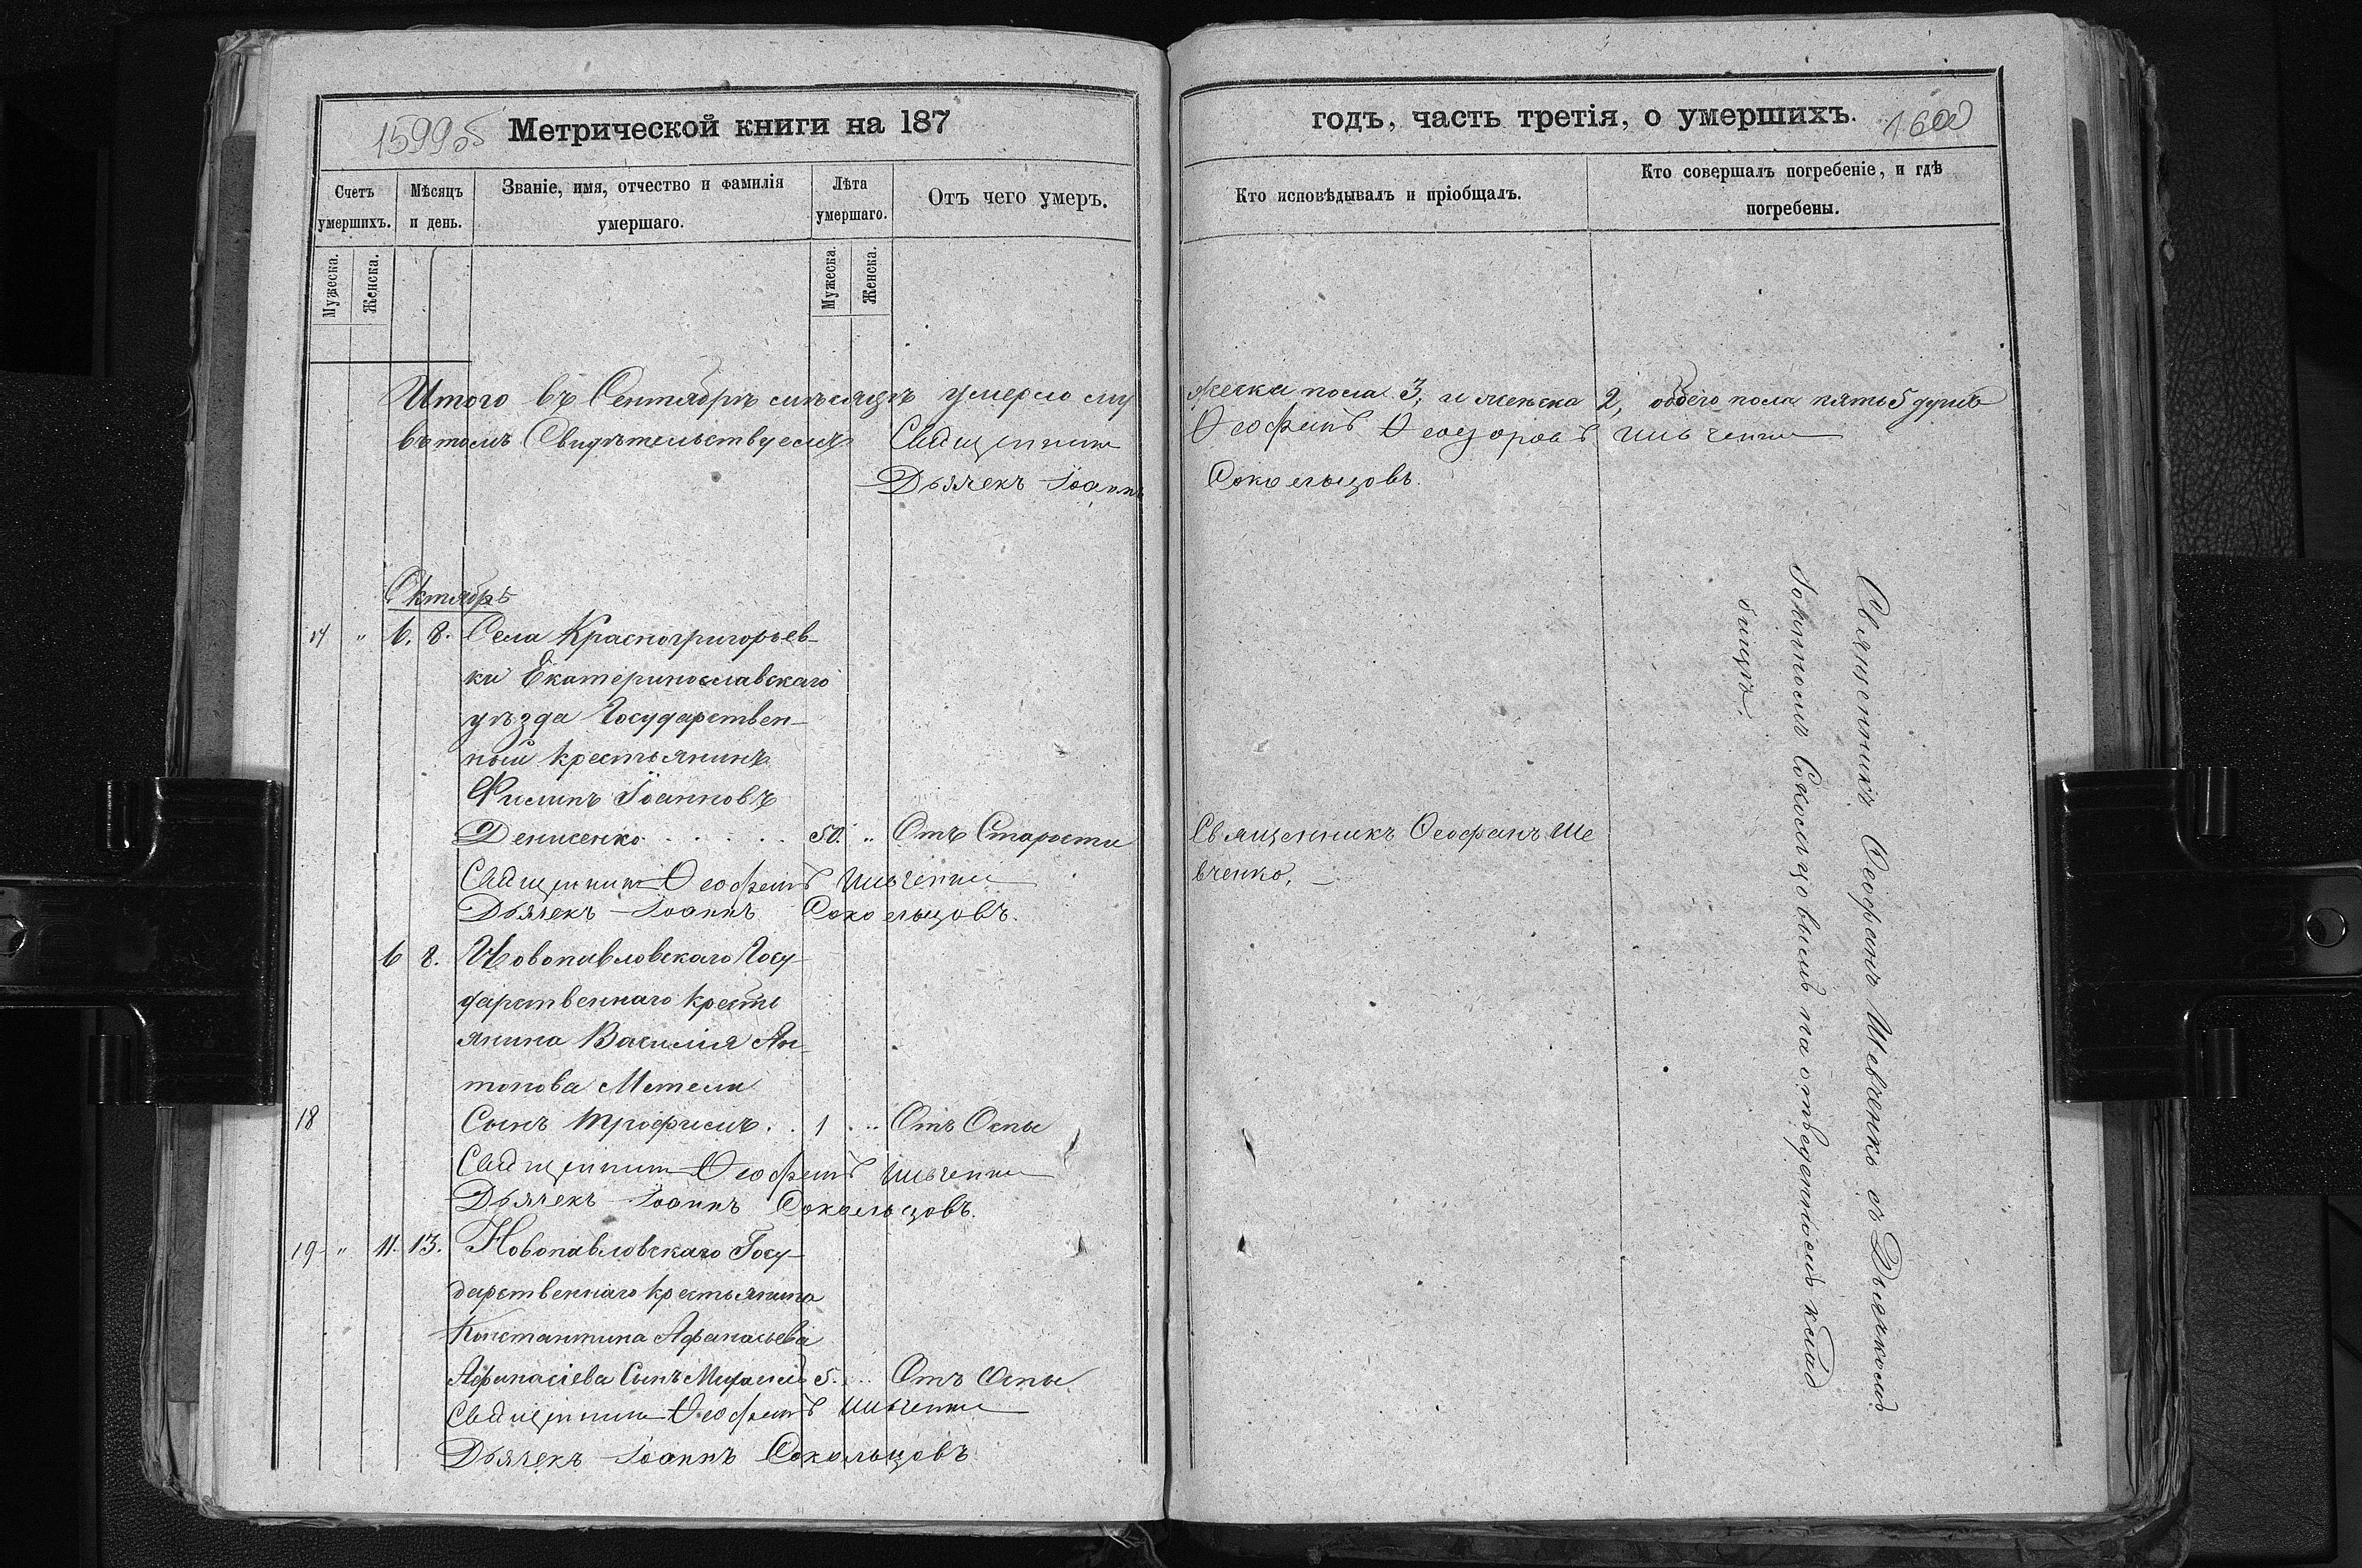 1599об
Метрической книги на 187
Счетъ умершихъ.
Мѣсяцъ и день.
Званіе, имя, отчество и фамилія умершаго.
Лѣта умершаго.
Отъ чего умеръ.
Мужеска.
Женска.
Мужеска
Женска.
годъ, часть третія, о умершихъ.
1600
Кто исповѣдывалъ и пріобщалъ.
Кто совершалъ погребеніе, и гдѣ погребены.
Итого въ Сентябрѣ мѣсяцѣ умерло му жеска пола 3, и женска 2, обоего пола пять 5 душъ
въ томъ Свидѣтельствуемъ Священникъ Ѳеофанъ Шевченко
Дьячекъ Іоаннъ Сокольцовъ.
Октябрь
17 " 6. 8. Села Красногригорьев-
ки Екатеринославскаго
уѣзда Государствен-
ный крестьянинъ
Филипъ Іоанновъ
Денисенко . . . . . . 50. " Отъ Старости Священникъ Ѳеофанъ Ше
вченко,
Священникъ Ѳеофанъ Шевченко
Дьячекъ Іоаннъ Сокольцовъ.
6 8. Новопавловскаго Госу-
дарственнаго кресть
янина Василія Ан-
тонова Метели
18 Сынъ Трофимъ . . 1 . " Отъ Оспы
Священникъ Ѳеофанъ Шевченко
Дьячекъ Іоаннъ Сокольцовъ.
19 " 11. 13. Новопавловскаго Госу-
дарственнаго крестьянина
Константина Афанасьева
Афанасіева Сынъ 5. Отъ Оспы
Священникъ Ѳеофанъ Шевченко
Дьячекъ Іоаннъ Сокольцовъ
Священникъ Ѳеофанъ Шевченко съ Дьячкомъ
Іоанномъ Сокольцовымъ на отведенномъ клад
бищѣ.